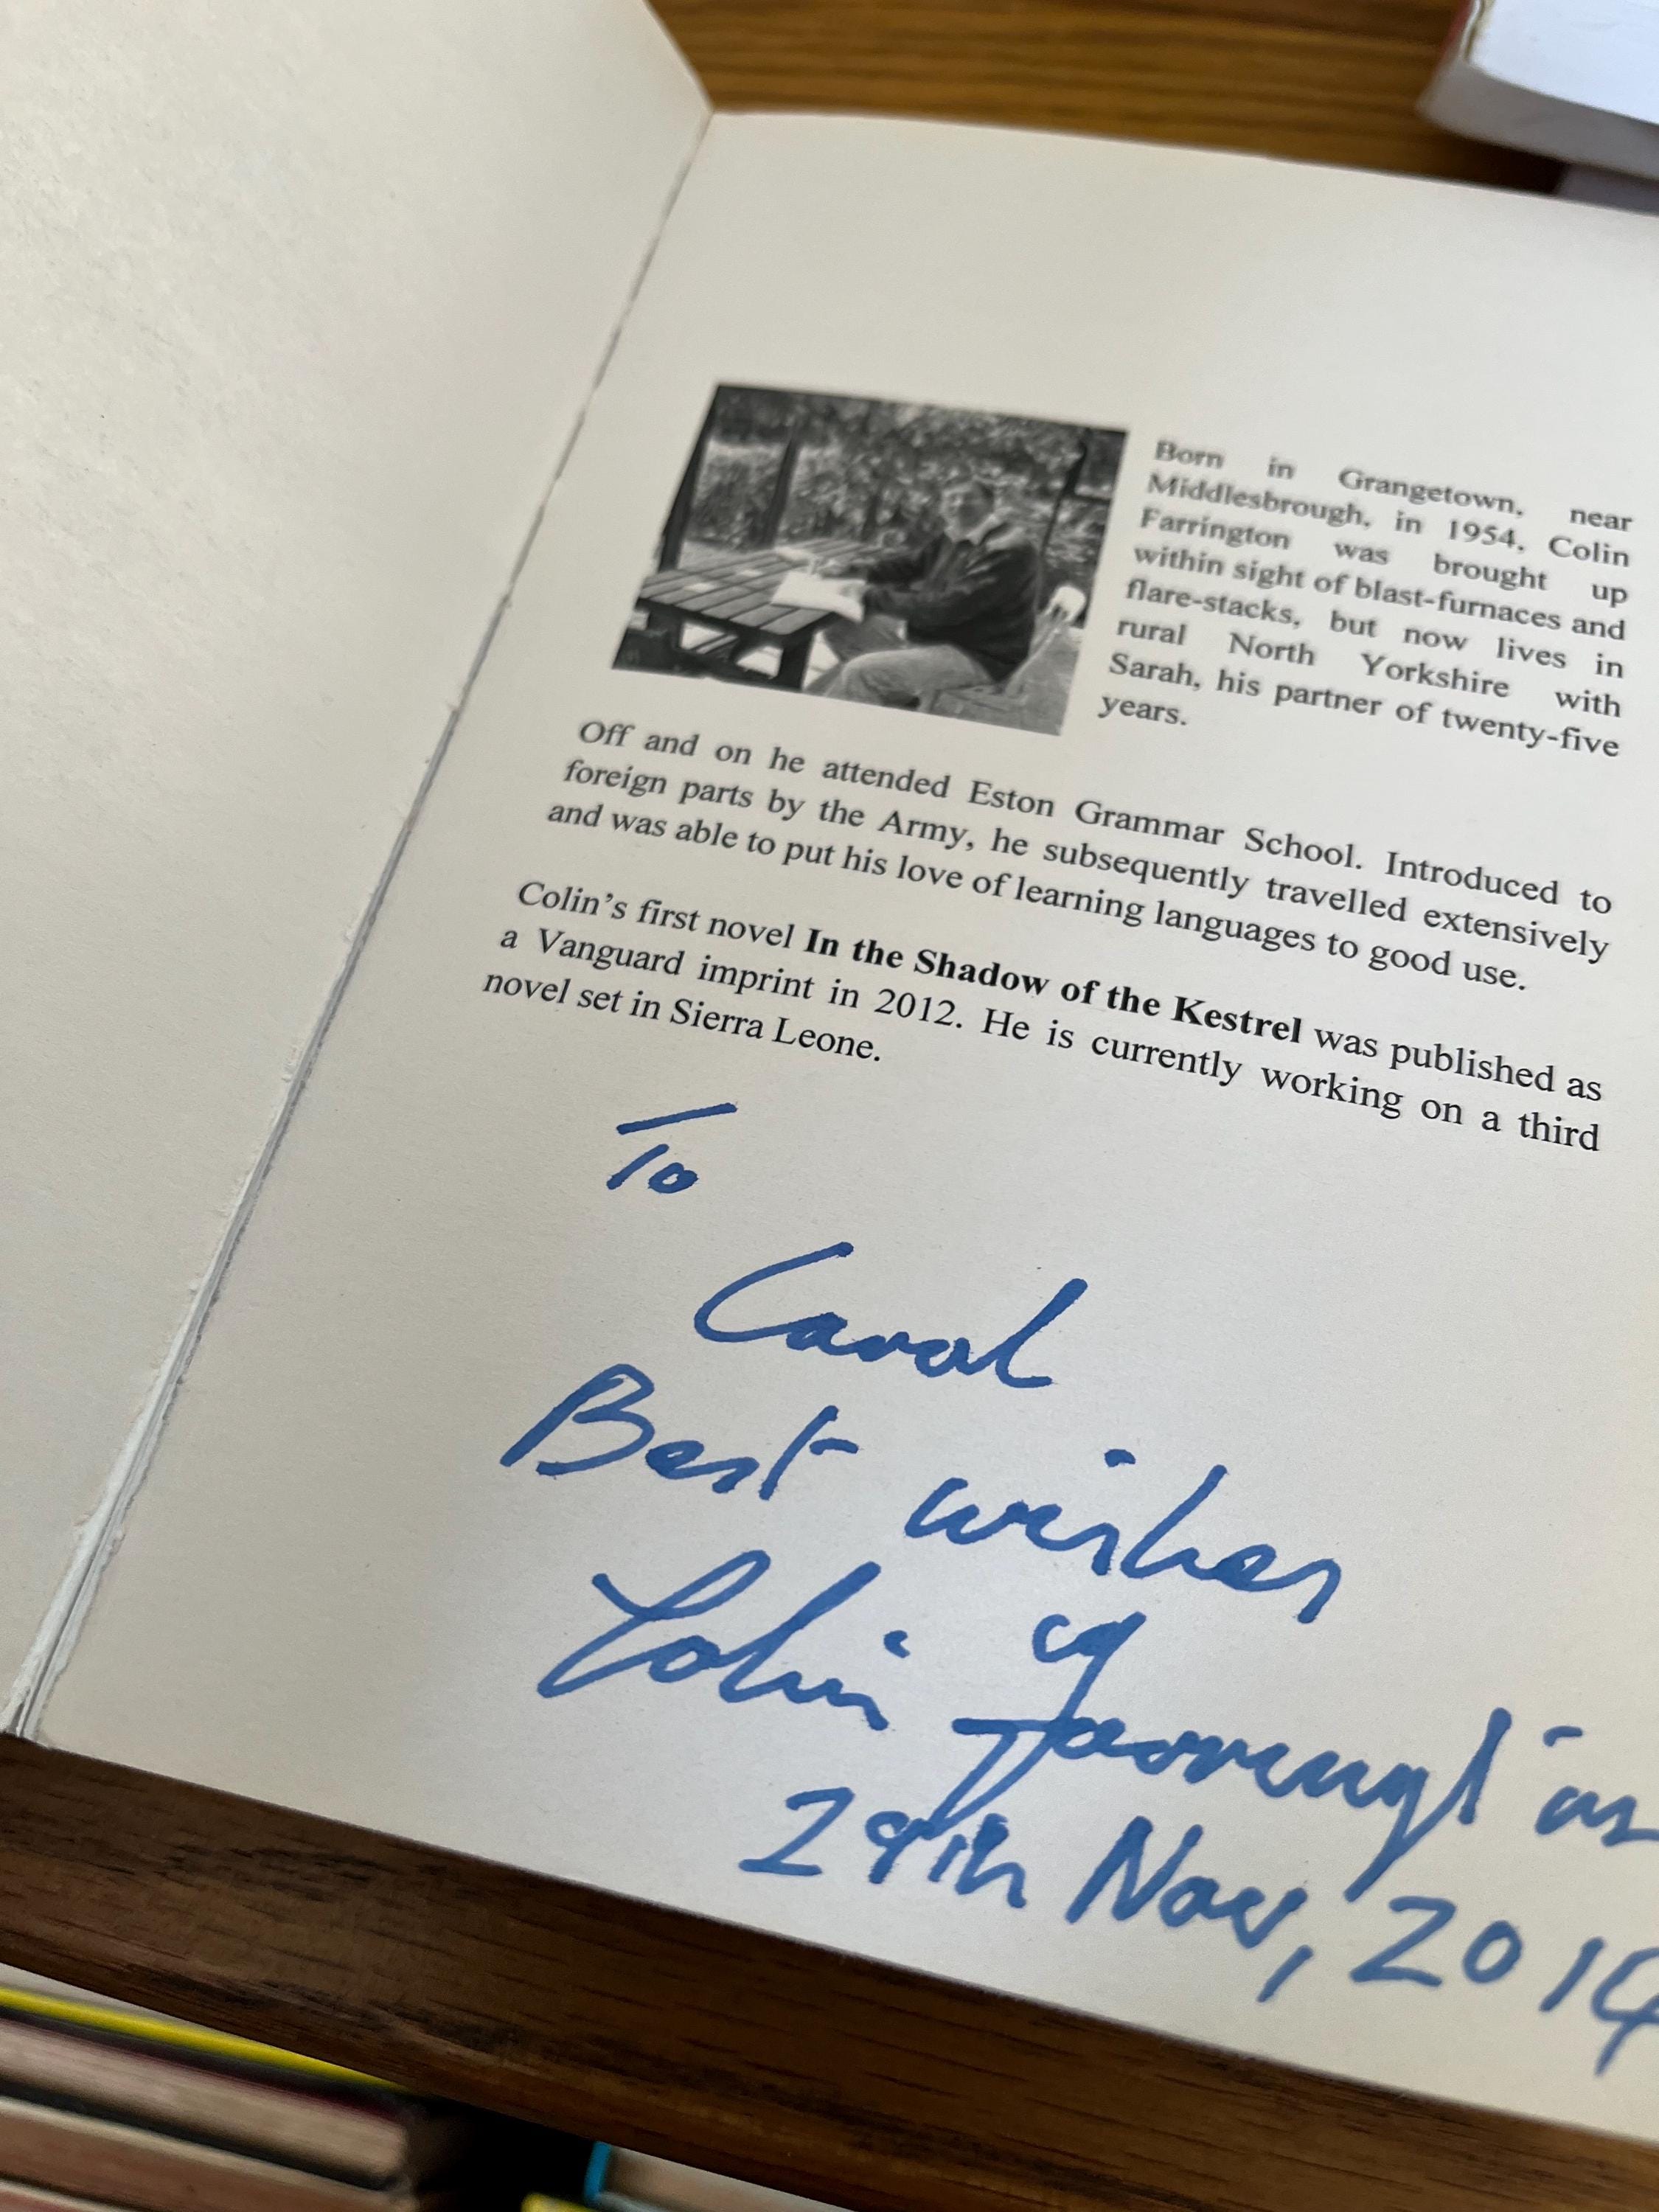 Born in Grangetown, near
Middlesbrough, in 1954, Colin
Farrington was brought up
within sight of blast-furnaces and
flare-stacks, but now lives in
rural North Yorkshire with
Sarah, his partner of twenty-five
years.
Off and on he attended Eston Grammar School. Introduced to
foreign parts by the Army, he subsequently travelled extensively
and was able to put his love of learning languages to good use.
Colin’s first novel In the Shadow of the Kestrel was published as
a Vanguard imprint in 2012. He is currently working on a third
novel set in Sierra Leone.
To
Carol
Best wishes
Colin Farrington
29th Nov, 2014